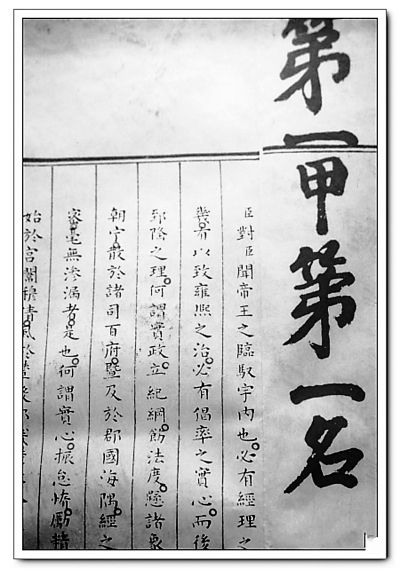 第一甲第一名
臣對臣聞帝王之臨馭宇內也必有經理之
有以致雍熙之治必有倡率之實心而後
郅隆之理何謂實政立紀綱飭法度懸諸象
朝宁散於諸司百府暨及於郡國海隅經之
密毫無滲漏者是也何謂實心振怠惰勵精
始於宮闈穆清風於